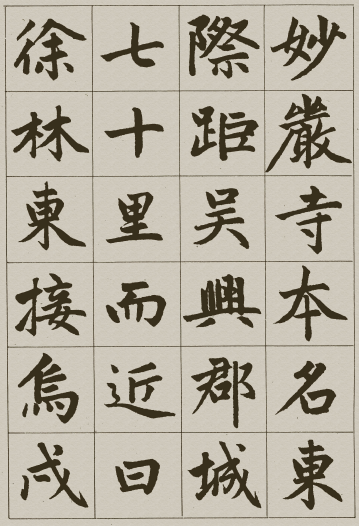 妙嚴寺本名東
際距吳興郡城
七十里而近曰
徐林東接烏戍